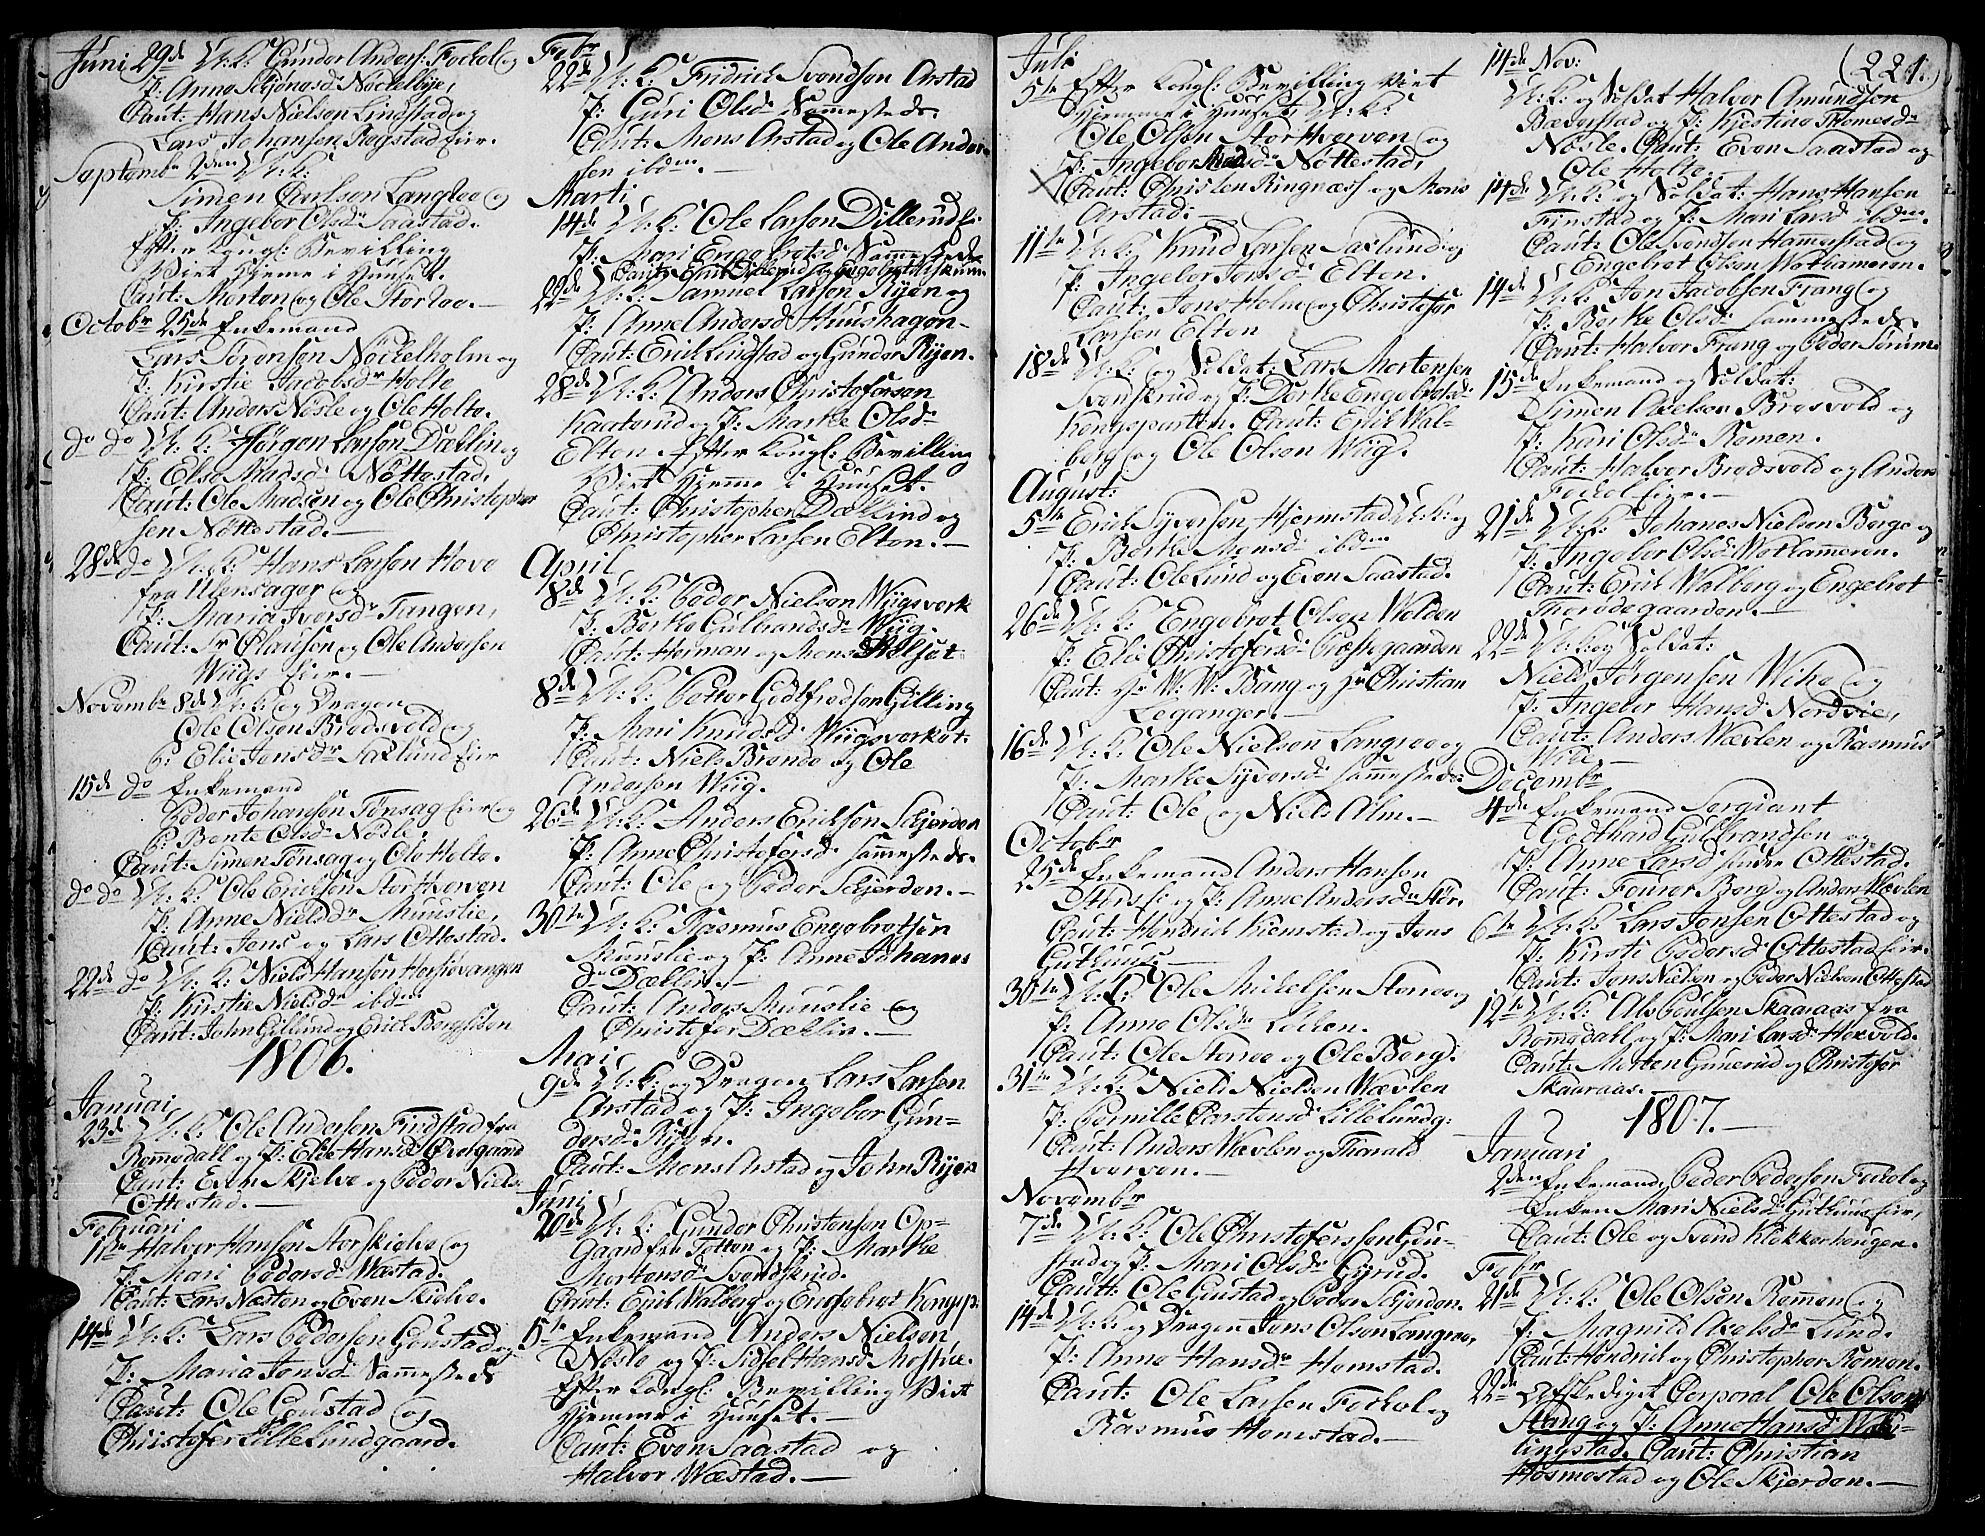 Juni 29de U: K: Gunder Anders: Fockol og
P: Anne Schiønasd: Nöckelbye,
Caut: Hans Nielsen Lindstad og
Lars Johansen Rogstad eier.
Septembr 2den U: K:
Simen Carlsen Langloe og
P: Ingebor Olsdr Saastad.
Efter Kongl: Bevilling
Viet Hjeme i Huuset.
Caut: Morten og Ole Storloe.—
Octobr 25de Enkemand
Lars Sörensen Nöckelholm og
P: Kirstie Jacobsdr Holte
Caut: Anders Nösle og Ole Holte.
do do U: K: Jörgen Larsen Dællin og
P: Else Madsdr Nöttestad.
Caut: Ole Madsen og Ole Christopher
sen Nöttestad.—
28de do U: K: Hans Larsen Hove
fra Ulensager og
P: Maria Iversdr Tangen,
Caut: Hr Clausen og Ole Andersen
Wiigs eier.—
Novembr 8de U: K: og Dragon
Ole Olsen Brodsvold og
P: Elie Jonsdr Saxlund eier
15de do Enkemand
Peder Johansen Tönsag eier og
P: Bente Olsdr Nösle.
Caut: Simen Tönsag og Ole Holte.
do do U: K: Ole Ericksen Storhverven
P: Anne Nielsdr Muuslie,
Caut: Jens og Lars Ottestad.
22de do U: K: Niels Hansen Hersiövangen
P: Kirstie Nielsdr ibdm
Caut: John Gillund og Erick Bergsiden
1806.
Januari
23de U: K: Ole Andersen Findstad fra
Romsdall og P: Elie Hansdr Övergaard
Caut: Even Skjelve og Peder Niels:
Ottestad.—
Februari
11te Halvor Hansen Storskiolve og
P: Mari Pedersdr Wæstad.
Caut: Lars Næsten og Even Skiolve.
14de U: K: Lars Pedersen Goustad og
P: Maria Jonsdr Sammesteds
Caut: Ole Goustad og
Christofer Lille Lundgaard.
Febr
22de U: K: Fridrick Svendsen Arstad
P: Guri Olsdr Sammesteds
Caut: Mons Arstad og Ole Ander-
sen ibdm.—
Marti
14de U: K: Ole Larsen Dillerud Ei:
P: Mari Engebretsdr Sammesteds
Caut: Erik Dillerud og Engebret Diskerud
22de U: K: Samuel Larsen Ryen og
P: Anne Andersdr Huushagen
Caut: Erik Lindstad og Gunder Ryen.
28de U: K: Anders Christofersen
Kaaterud og P: Marthe Olsdr
Elton. Efter Kongl: Bevilling
Viet Hjemme i Huuset.
Caut: Christopher Dællind og
Christopher Larsen Elton.—
April
8de U: K: Peder Nielsen Wiigsverk
P: Berthe Gulbrandsdr Wiig.
Caut: Herman og Mons Holset
8de U: K: Petter Godfredsen Gilling
P: Mari Knudsdr Wiigsverket:
Caut: Niels Brende og Ole
Andersen Wiig.
26de U: K: Anders Ericksen Skjerden
P: Anne Christofersdr Sammesteds.
Caut: Ole og Peder Skjerden.—
30te U: K: Rasmus Engebretsen
Muuslie og P: Anne Johanes
dr Dællin.—
Caut: Anders Muuslie og
Christofer Dællin.—
Mai
9de U: K: og Dragon Lars Larsen
Arstad og P: Ingebor Gun-
dersdr Ryen.
Caut: Mons Arstad og John Ryen
Juni
20de U: K: Gunder Christensen Op-
Gaard fra Totten og P: Marthe
Mortensdr Svendskrud.
Caut: Erik Walberg og Engebret Kongsp:
5te Enkemand Anders Nielsen
Nösle og P: Sidsel Hansdr Mostue.
Efter Kongl: Bevilling Viet
Hjemme i Huuset.—
Caut: Even Saastad og
Halvor Wæstad.—
Juli
5te Efter Kongl: Bevilling Viet
Hjemme i Huuset U: K:
Ole Olsen Storhverven og
P: Ingebor Madsdr Nöttestad,
Caut: Christen Ringnæss og Mons
Arstad.—
11te U: K: Knud Larsen Saxlund og
P: Ingebor Jensdr Elton.
Caut: Jens Holm og Christofer
Larsen Elton
18de U: K: og Soldat: Lars Mortensen
Svenskrud og P: Dorthe Engebretsdr
Kongsparten. Caut: Erik Wal-
berg og Ole Olsen Wiig.
August:
5te Erick Syversen Hjermstad U: K: og
P: Berthe Monsdr ibdm
Caut: Ole Lund og Even Saastad.
26de U: K: Engebret Olsen Wolden
P: Elie Christofersdr Præstegaarden
Caut: Hr W: W: Bang og Hr Christian
Leganger.—
16de U: K: Ole Nielsen Langroe og
P: Marthe Syversdr sammesteds:
Caut: Ole og Niels Alm.—
Octobr
25de Enkemand Anders Hansen
og P: Anne Andersdr
Caut: Hendrich Kiemstad og Jens
Guthuus.—
30te U: K: Ole Mickelsen Storroe og
P: Anne Olsdr Lökken.
Caut: Ole Storroe og Ole Berg.
31te U: K: Niels Nielsen Wævlen
P: Pernille Carstensdr Lille Lundg:
Caut: Anders Wævlen og Tharald
Hverven.—
Novembr
7de U: K: Ole Christofersen Gou-
stad og P: Mari Olsdr Gyrud.
Caut: Ole Goustad og Peder Skjerden.
14de U: K: og Dragon Jens Olsen Langroe,
P: Anne Hansdr Homstad.
Caut: Ole Larsen Fockol og
Rasmus Homstad.—
14de Nov: (221.)
U: K: og Soldat Halvor Amundsen
Bæverstad og P: Kjestina Thomesdr
Nösle. Caut: Even Saastad og
Ole Holte.
14de U: K: og Soldat: Hans Hansen
Finstad og P: Mari Larsdr ibdm
Caut: Ole Svendsen Hammerstad og
Engebret Olsen Wotkameren.
14de U: K: Jon Jacobsen Frang og
P: Berthe Olsdr sammesteds
Caut: Halvor Frang og Peder Sörum.
15de Enkemand og Soldat:
Simen Axelsen Brosvold og
P: Kari Olsdr Romen.
Caut: Halvor Brodsvold og Anders
Fockol eier.—
21de U: K: Johanes Nielsen Berge og
P: Ingebor Olsdr Wotkameren.
Caut: Erick Walberg og Engebret
Therödegaarden.—
22de U: K: og Soldat:
Niels Jörgensen Wike og
P: Ingebor Hansdr Nordvie,
Caut: Anders Wævlen og Rasmus
Wibe.—
Decembr
4de Enkemand Sergiant
Godthard Gulbrandsen og
P: Anne Larsdr Söndre Ottestad.
Caut: Fourer Berg og Anders Wævlen
6te U: K: Lars Jensen Ottestad og
P: Kirsti Pedersdr Ottestad eier.
Caut: Jens Nielsen og Peder Nielsen Ottestad
12te U: K: Ole Poulsen Skaaraas fra
Romsdall og P: Mari Larsdr Hexvold.
Caut: Morten Gunerud og Christofer
Skaaraas.—
1807.—
Januari
2den Enkemand, Peder Pedersen Fockol og
Enken Mari Nielsdr Guthuus eier,
Caut: Ole og Svend Klökkerhougen.
Febr
21de U: K: Ole Olsen Rommen og
P: Magnild Axelsdr Lund.
Caut: Hendrick og Christopher Romen.
22de Afskediget Corporal Ole Olsen
Stang og P: Anne Hansdr Wæl-
lingstad. Caut: Christian
Hosmestad og Ole Skjerden.—